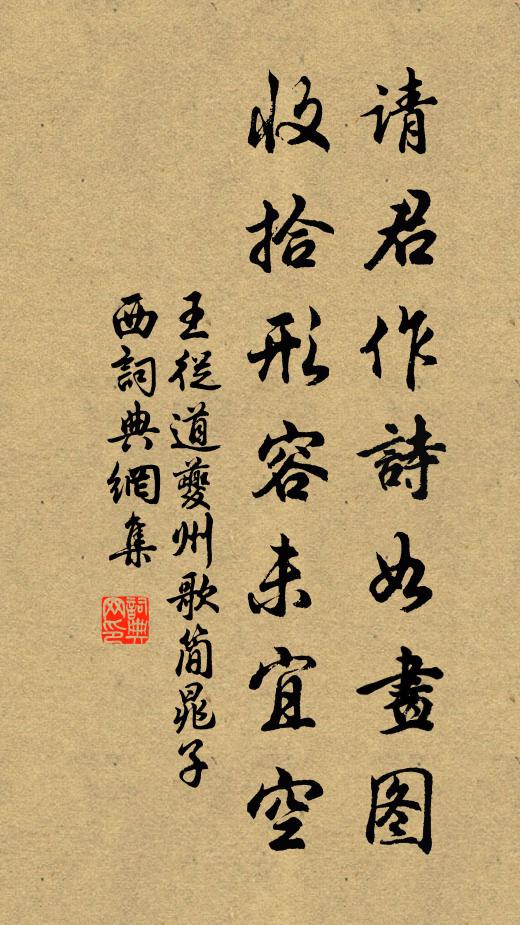 请君作詩如畫图
收拾形容未宜空
王從道夔州歌简晁子
西詞典網集
詞典网印